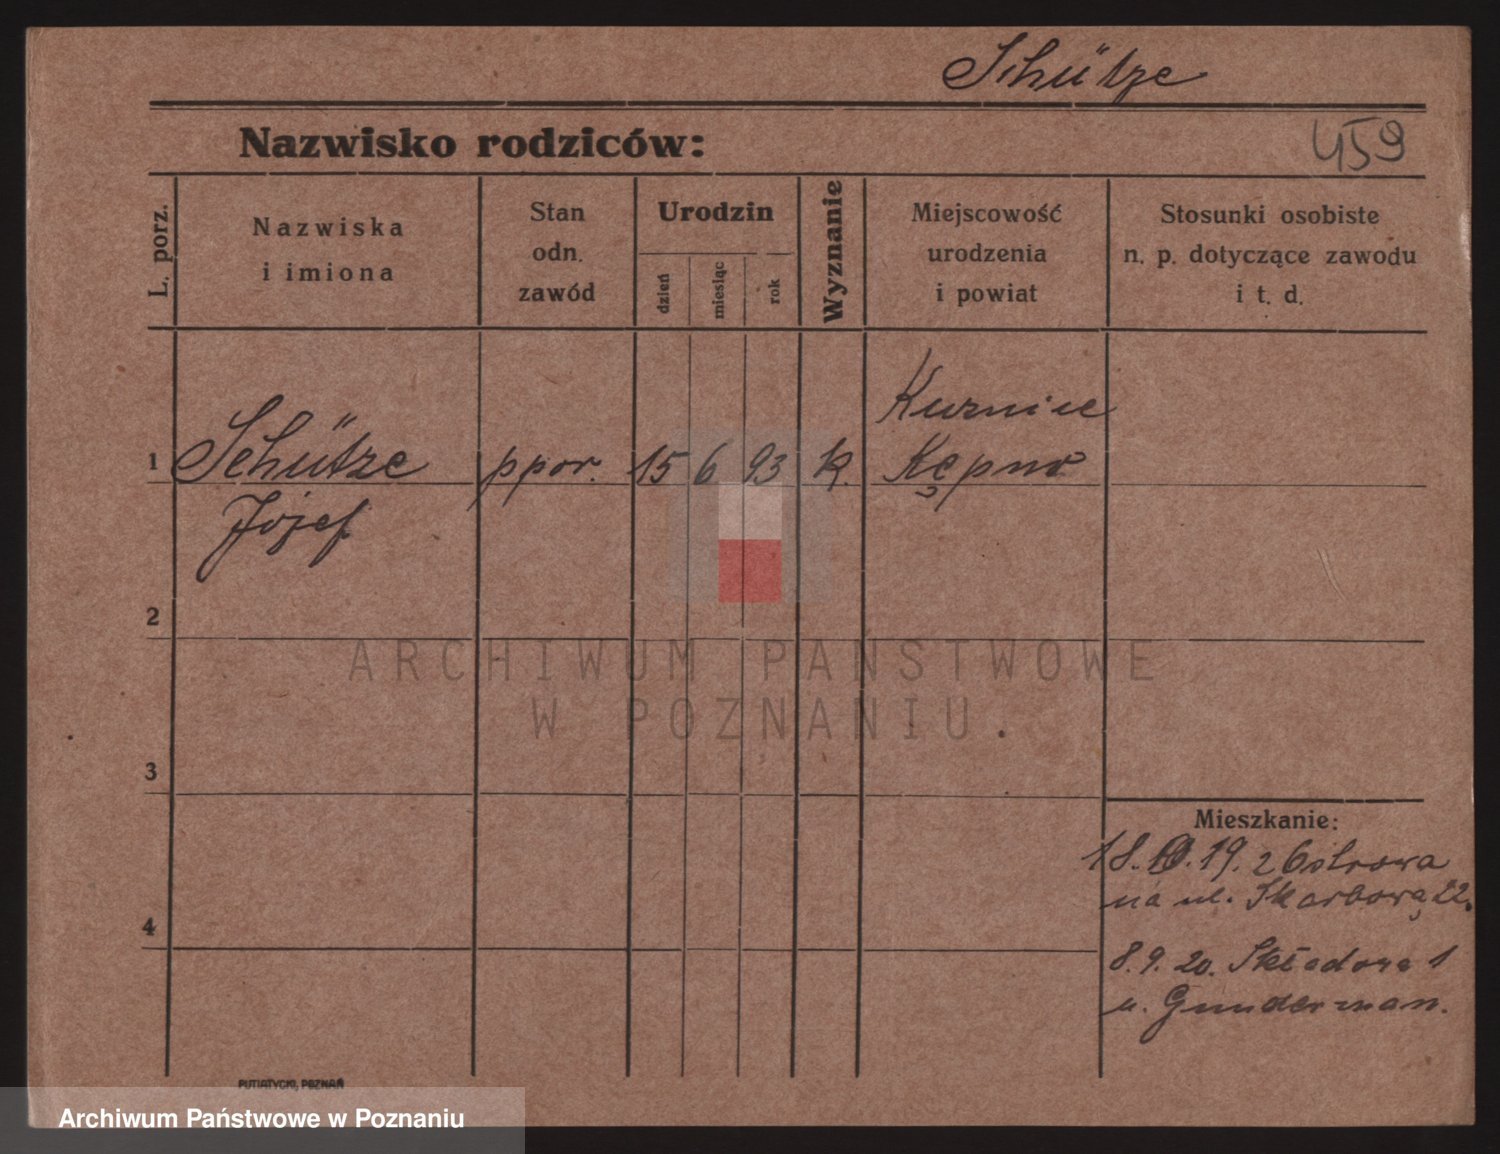 Schütze
Nazwisko rodziców:
459
L. porz.
Nazwiska
i imiona
Stan
odn.
zawód
Urodzin
dzień
miesiąc
rok
Wyznanie
Miejscowość
urodzenia
i powiat
Stosunki osobiste
n. p. dotyczące zawodu
i t. d.
1 Schütze ppor. 15 6 93 k. Kępno
Józef
2
3
4
Mieszkanie:
18. 19. z Ostrowa
na ul. Skarbową 22.
8.9.20. Składowa 1
u. Gunderman.
PUTIATYCKI, POZNAŃ
ARCHIWUM PAŃSTWOWE
W POZNANIU.
Archiwum Państwowe w Poznaniu